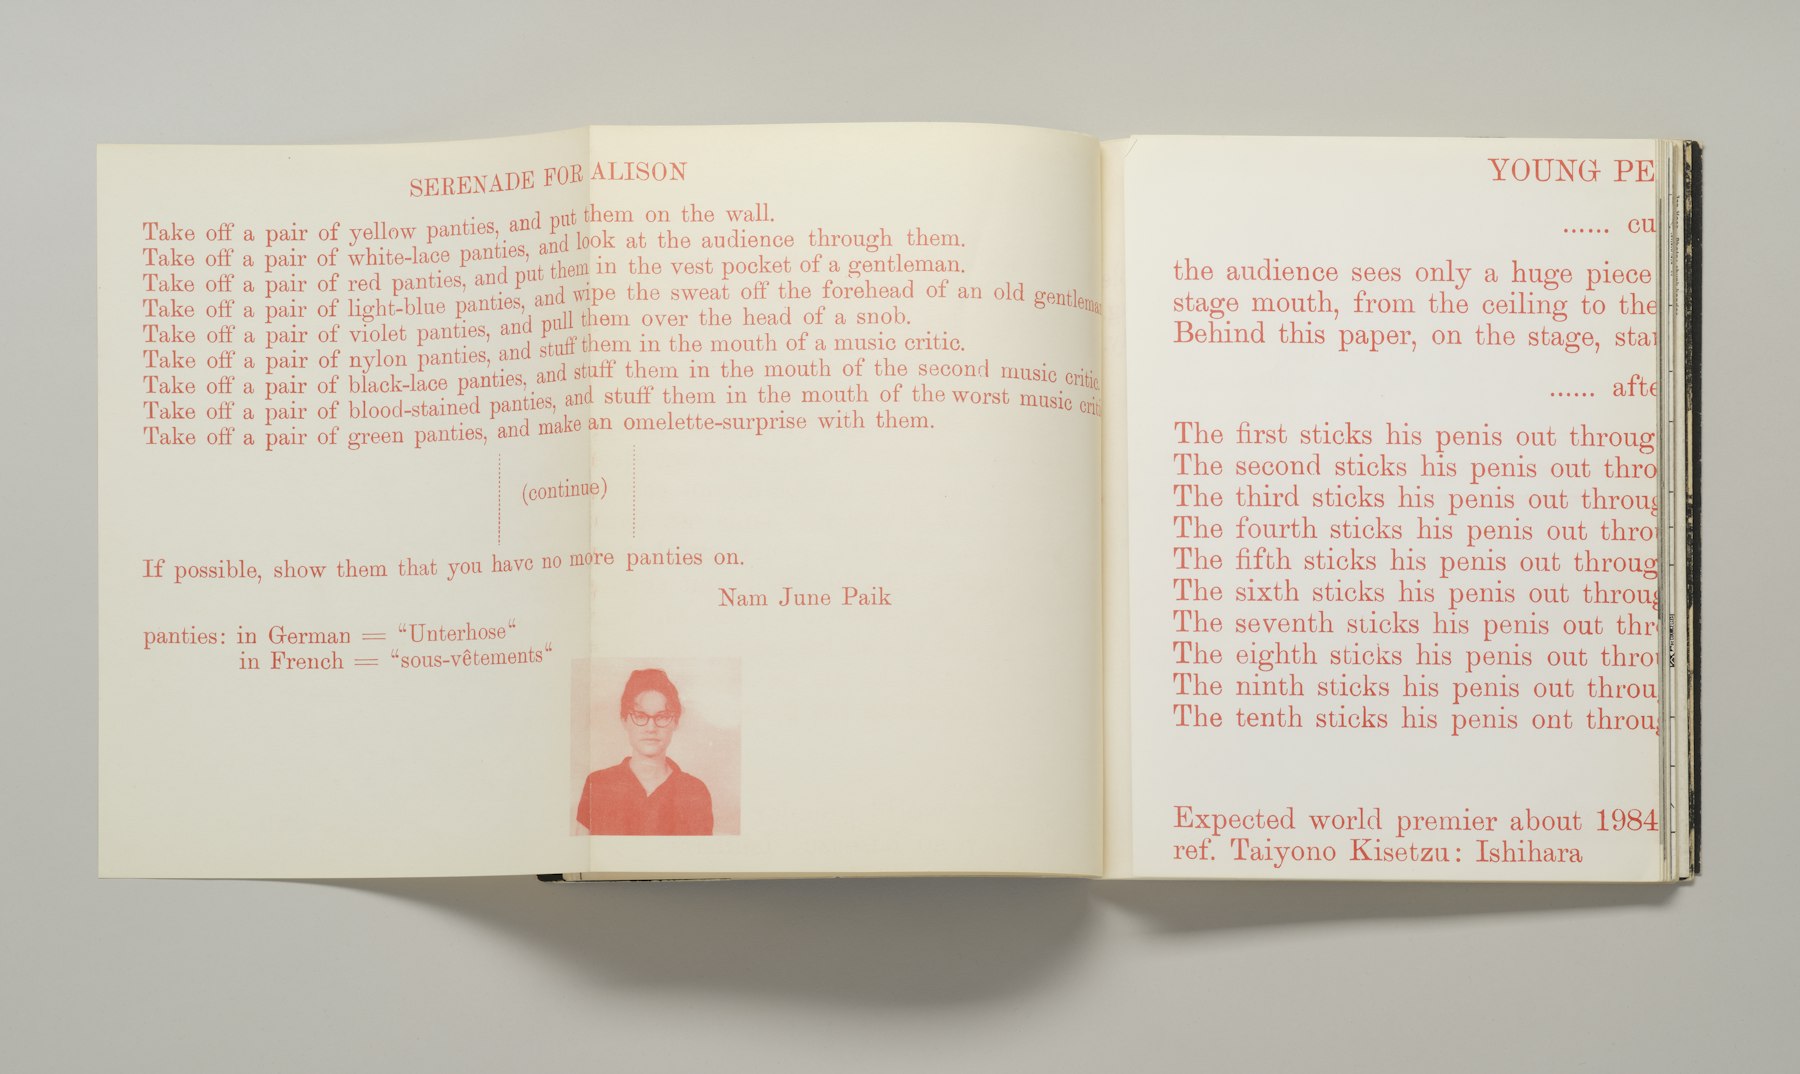 SERENADE FOR ALISON
Take off a pair of yellow panties, and put them on the wall.
Take off a pair of white-lace panties, and look at the audience through them.
Take off a pair of red panties, and put them in the vest pocket of a gentleman.
Take off a pair of light-blue panties, and wipe the sweat off the forehead of an old gentleman
Take off a pair of violet panties, and pull them over the head of a snob.
Take off a pair of nylon panties, and stuff them in the mouth of a music critic.
Take off a pair of black-lace panties, and stuff them in the mouth of the second music critic.
Take off a pair of blood-stained panties, and stuff them in the mouth of the worst music criti
Take off a pair of green panties, and make an omelette-surprise with them.
(continue)
If possible, show them that you have no more panties on.
Nam June Paik
panties: in German = “Unterhose“
in French = “sous-vêtements“
YOUNG PE
...... cu
the audience sees only a huge piece
stage mouth, from the ceiling to the
Behind this paper, on the stage, sta
...... afte
The first sticks his penis out throug
The second sticks his penis out thro
The third sticks his penis out throug
The fourth sticks his penis out thro
The fifth sticks his penis out throug
The sixth sticks his penis out throug
The seventh sticks his penis out thr
The eighth sticks his penis out thro
The ninth sticks his penis out throu
The tenth sticks his penis ont throug
Expected world premier about 1984
ref. Taiyono Kisetzu: Ishihara